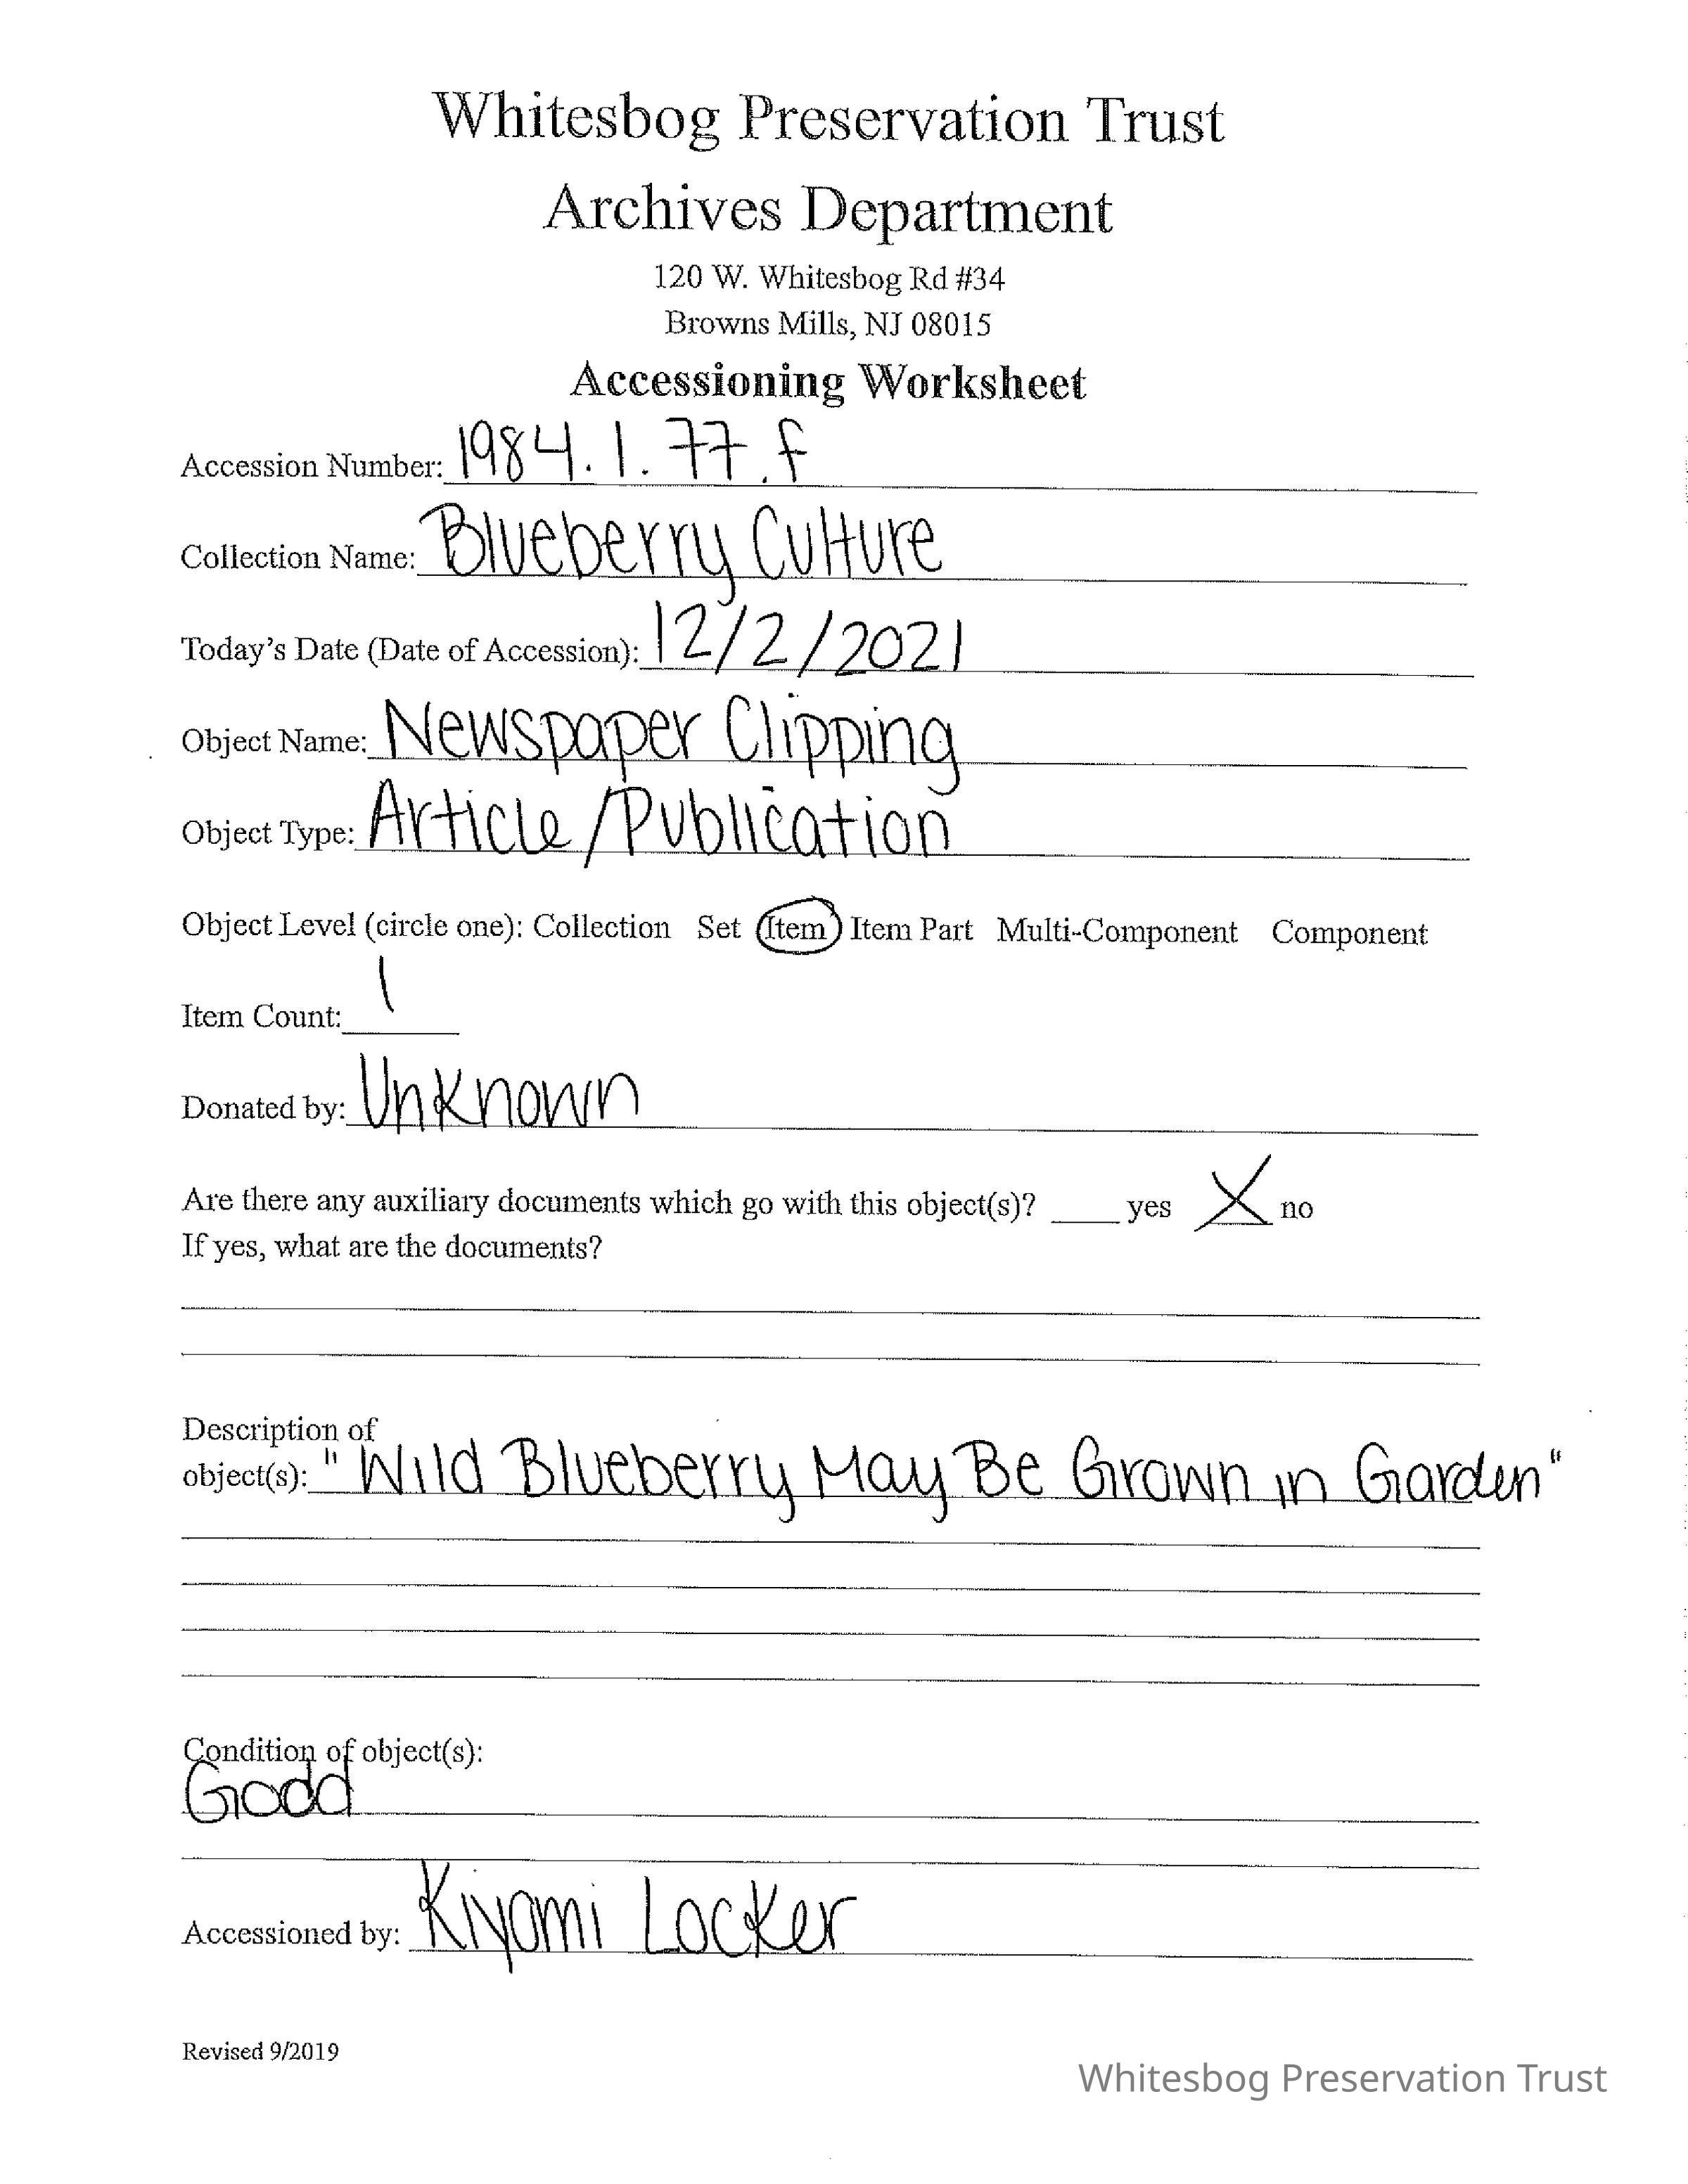 Whitesbog Preservation Trust
Archives Department
120 W. Whitesbog Rd #34
Browns Mills, NJ 08015
Accessioning Worksheet
Accession Number: 1984.1.77.f
Collection Name: Blueberry Culture
Today's Date (Date of Accession): 12/2/2021
Object Name: Newspaper Clipping
Object Type: Article/Publication
Object Level (circle one): Collection Set Item Item Part Multi-Component Component
Item Count: 1
Donated by: Unknown
Are there any auxiliary documents which go with this object(s)? ____ yes X no
If yes, what are the documents?
Description of
object(s): "Wild Blueberry May Be Grown in Garden"
Condition of object(s):
Good
Accessioned by: Kiyomi Locker
Revised 9/2019
Whitesbog Preservation Trust